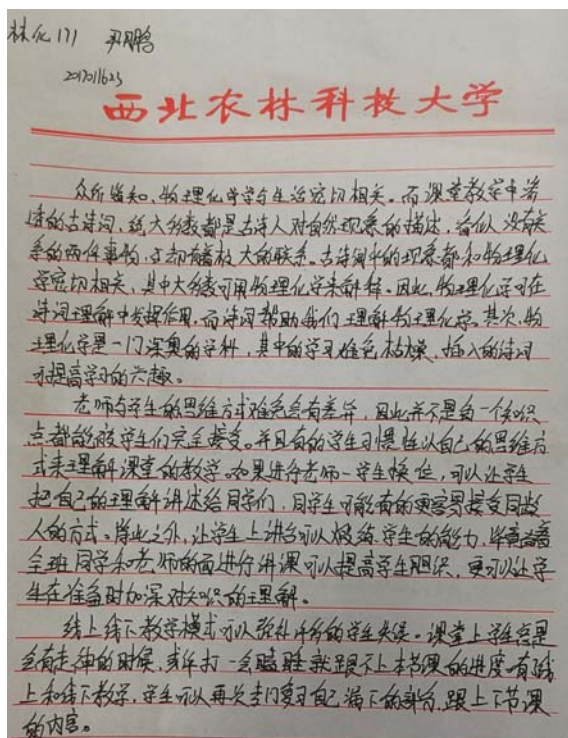 林化171 尹鹏
2017011623
西北农林科技大学
众所皆知,物理化学学与生活密切相关。而课堂教学中渗
透的古诗词,绝大多数都是古诗人对自然现象的描述,看似没有关
系的两件事物,古却有着极大的联系。古诗词中的现象都和物理化
学密切相关,其中大多数可用物理化学来解释。因此,物理化学可在
诗词理解中发挥作用,而诗词帮助我们理解物理化学。其次,物
理化学是一门深奥的学科,其中的学习难免枯燥,插入的诗词
可提高学习的兴趣。
老师与学生的思维方式难免会有差异,因此并不是每一个知识
点都能被学生们完全接受。并且有的学生习惯性以自己的思维方
式来理解课堂的教学。如果进行老师-学生换位,可以让学生
把自己的理解讲述给同学们,同学生可能有的更容易接受同龄
人的方式。除此之外,让学生上讲台可以锻炼学生的能力,毕竟当着
全班同学和老师的面进行讲课可以提高学生胆识,更可以让学
生在准备时加深对知识的理解。
线上线下教学模式可以弥补许多的学生失误。课堂上学生总是
会有走神的时候,或许打一会瞌睡就跟不上本节课的进度。有线
上和线下教学,学生可以再次专门复习自己漏下的部分,跟上下节课
的内容。